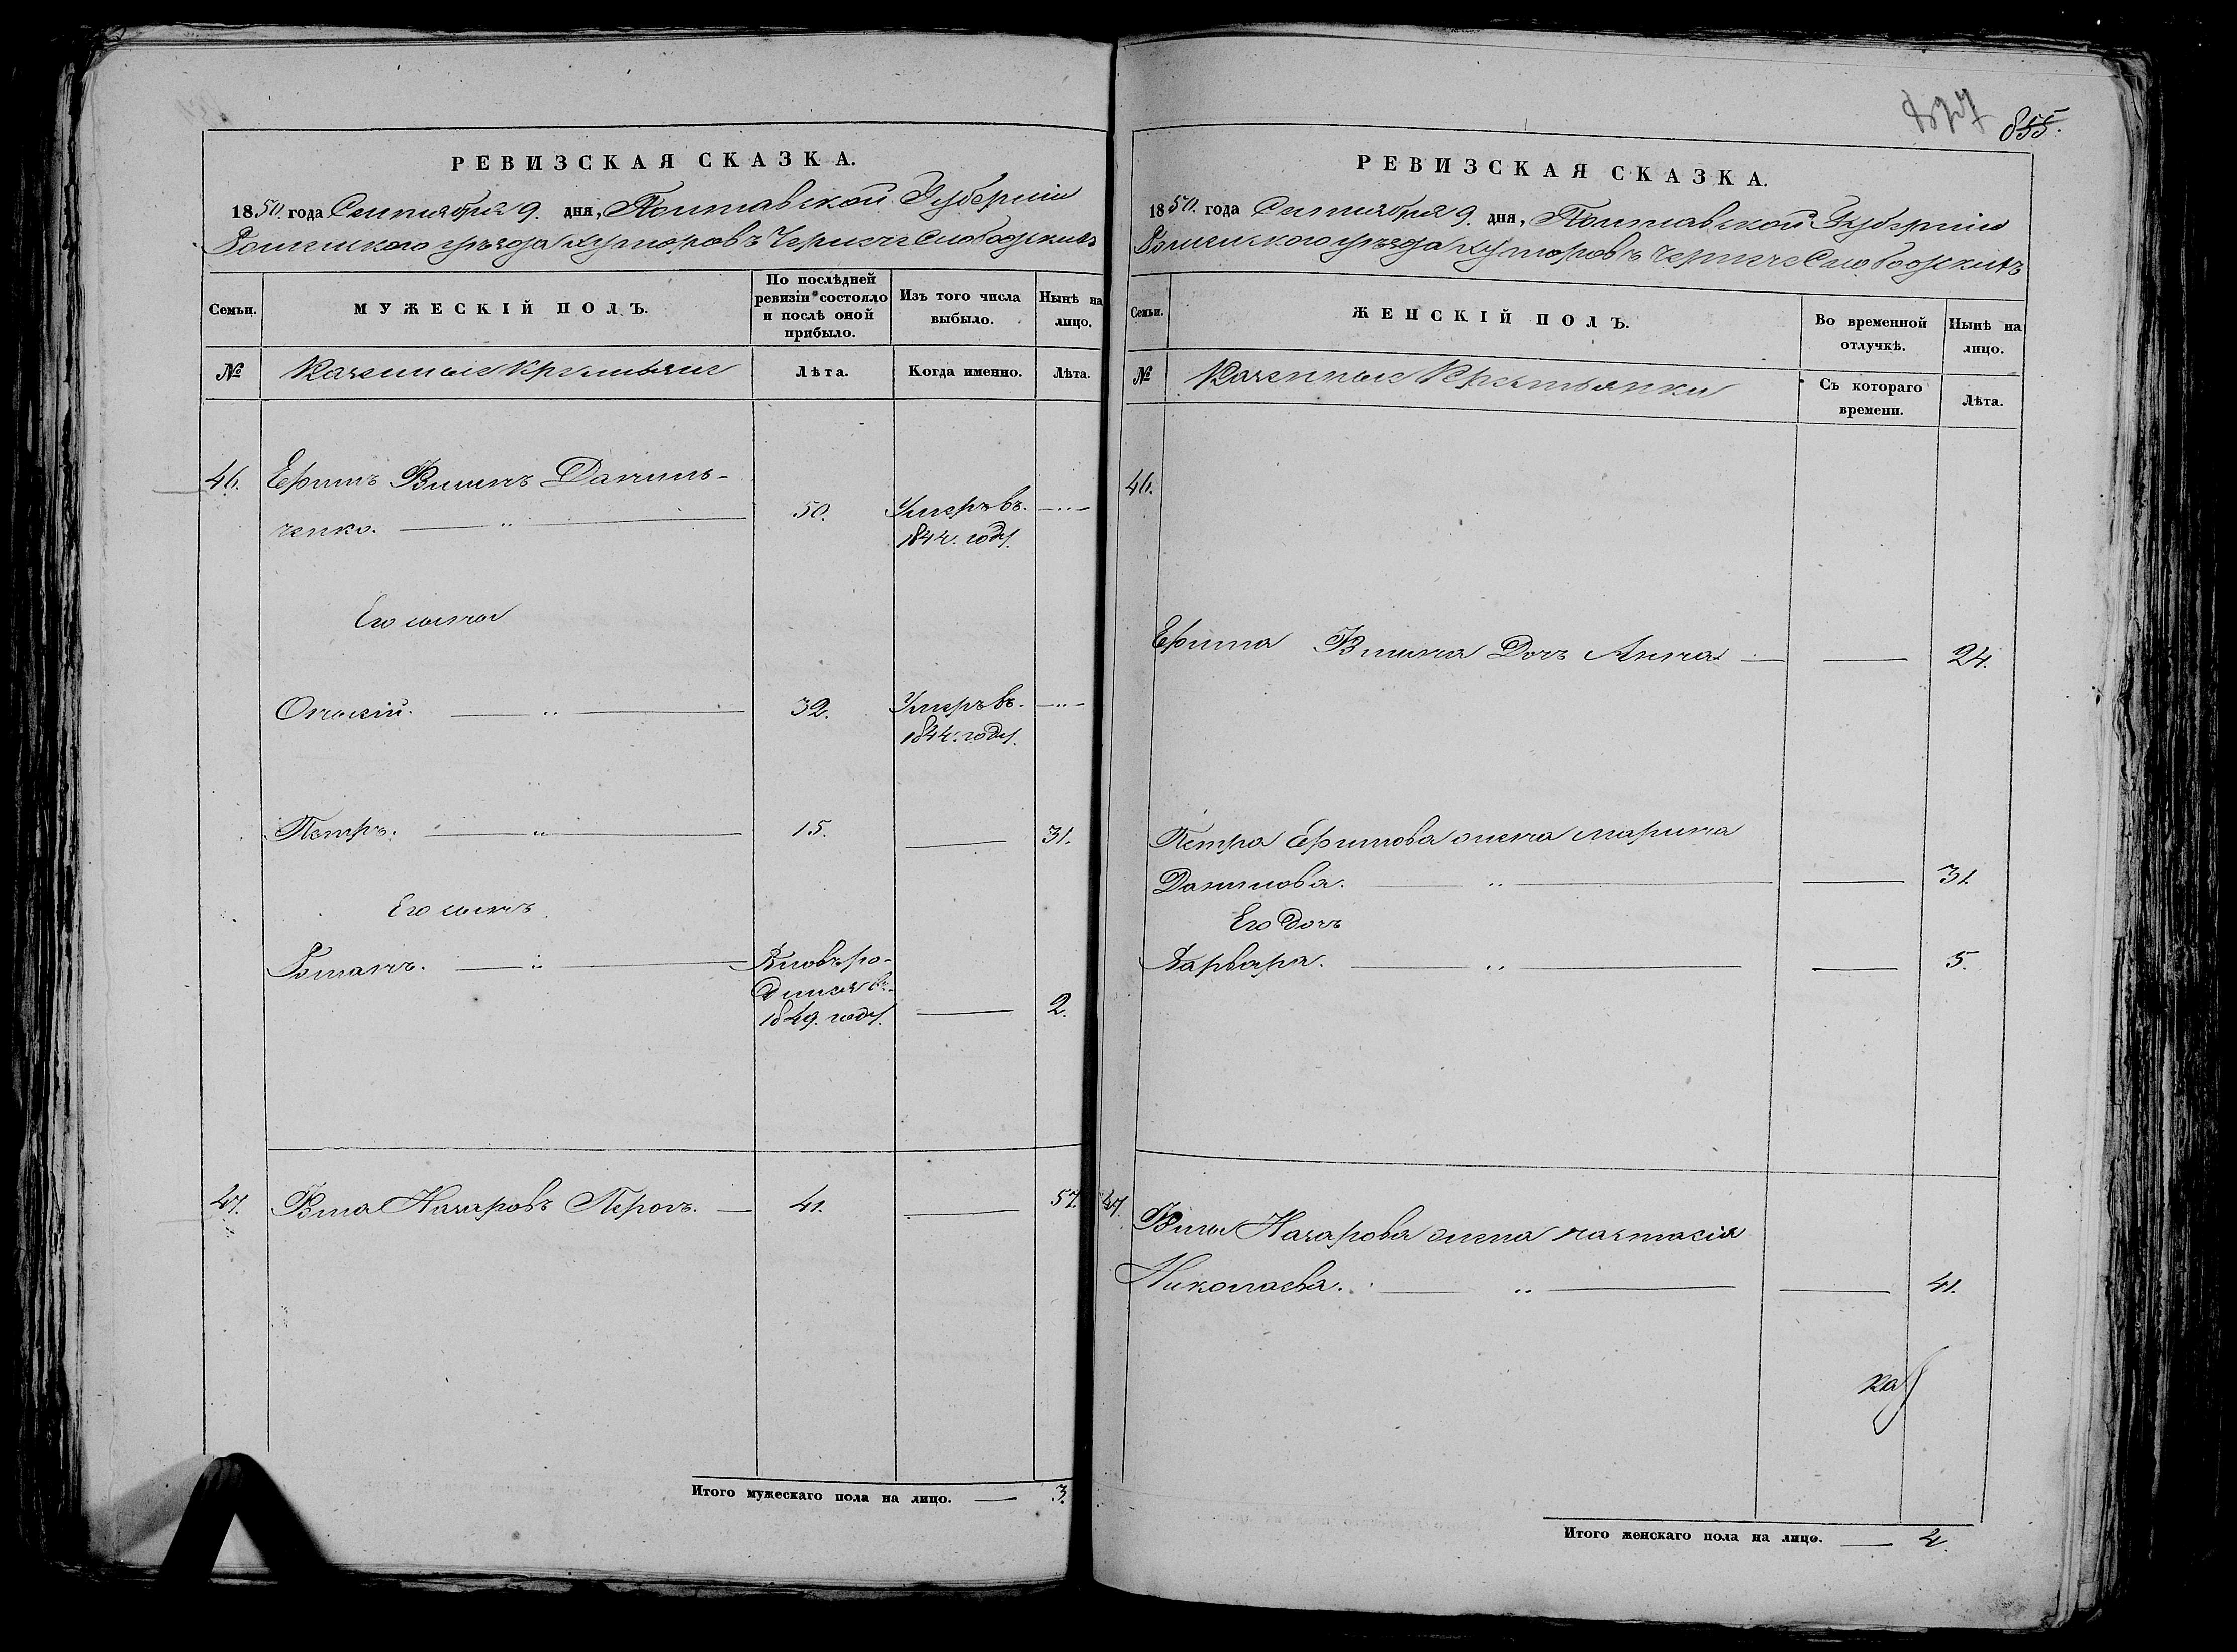 РЕВИЗСКАЯ СКАЗКА.
1850. года Сентября 9. дня, Полтавской Губерніи
Роменского уѣзда Хуторовъ Чернече Слободскихъ
Семьи.
МУЖЕСКІЙ ПОЛЪ.
По послѣдней ревизіи состояло и послѣ оной прибыло.
Изъ того числа выбыло.
Нынѣ на лицо.
№
Казенные Крестьяне
Лѣта.
Когда именно.
Лѣта.
46. Ефимъ Даниль-
ченко. 50. Умеръ въ
1844. году.
Его сыны
32. Умеръ въ
1844. году.
Петръ. 15. 31.
Его сынъ
Романъ. Вновь ро-
дился въ
1849. году. 2.
47. Назаровъ 41. 57.
Итого мужескаго пола на лицо. 3.
855.
РЕВИЗСКАЯ СКАЗКА.
1850. года Сентября 9. дня, Полтавской Губерніи
Роменского уѣзда Хуторовъ Чернече Слободскихъ
Семьи.
ЖЕНСКІЙ ПОЛЪ.
Во временной отлучкѣ.
Нынѣ на лицо.
№
Казенные Крестьянки
Съ котораго времени.
Лѣта.
46.
Ефима Дочь Анна 24.
Петра Ефимова жена Марина
Данилова. 31.
Его Дочь
Варвара. 5.
47. Назарова жена настасія
Николаева. 41.
Итого женскаго пола на лицо. 4.